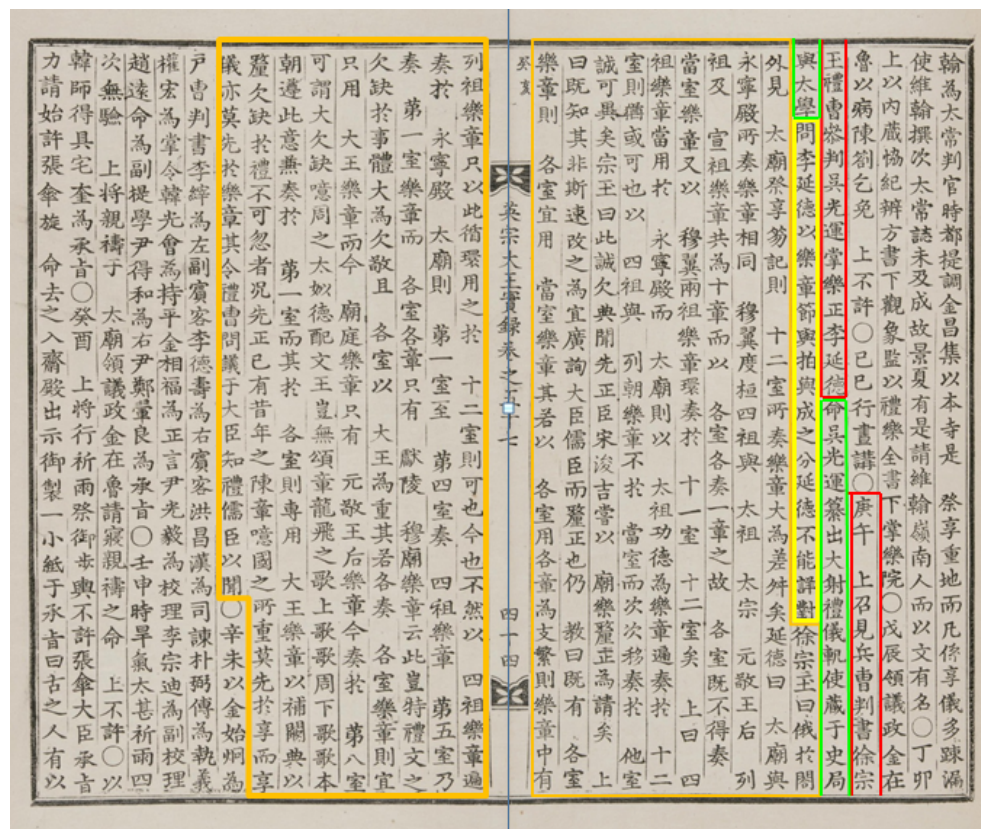 翰為太常判官時都提調金昌集以本寺是　祭享重地而凡係享儀多踈漏
使維翰撰次太常誌未及成故景夏有是請維翰嶺南人而以文有名○丁卯
上以内蔵協紀辨方書下觀象監以禮樂全書下掌樂院○戊辰領議政金在
魯以病陳劄乞免　上不許○己巳行晝講○庚午　上召見兵曹判書徐宗
玉禮曹參判吳光運掌樂正李延德命吳光運纂出大射禮儀軌使蔵于史局
與太學問李延德以樂章節與拍與成之分延德不能詳對徐宗玉曰俄於閤
外見　太廟祭享笏記則　十二室所奏樂章大為差舛矣延德曰　太廟與
永寧殿所奏樂章相同　穆翼度桓四祖與　太祖　太宗　元敬王后　列
祖及　宣祖樂章共為十章而以　各室各奏一章之故　各室既不得奏
當室樂章又以　穆翼兩祖樂章環奏於　十一室　十二室矣　上曰　四
祖樂章當用於　永寧殿而　太廟則以　太祖功德為樂章遍奏於　十二
室則猶或可也以　四祖與　列朝樂章不於　當室而次次移奏於　他室
誠可異矣宗玉曰此誠欠典聞先正臣宋浚吉嘗以　廟樂釐正為請矣　上
曰既知其非斯速改之為宜廣詢大臣儒臣而釐正也仍　教曰既有　各室
樂章則　各室宜用　當室樂章其若以　各室用各章為支繁則樂章中有
癸亥
英宗大王實錄卷之五十七　四一四
列祖樂章只以此循環用之於　十二室則可也今也不然以　四祖樂章遍
奏於　永寧殿　太廟則　第一室至　第四室奏　四祖樂章　第五室乃
奏　第一室樂章而　各室各章只有　獻陵　穆廟樂章云此豈特禮文之
欠缺於事體大為欠敬且　各室以　大王為重其若各奏　各室樂章則宜
只用　大王樂章而今　廟庭樂章只有　元敬王后樂章今奏於　第八室
可謂大欠缺噫周之太姒德配文王豈無頌章龍飛之歌上歌歌周下歌歌本
朝遵此意兼奏於　第一室而其於　各室則專用　大王樂章以補闕典以
釐欠缺於禮不可忽者況先正已有昔年之陳章噫國之所重莫先於享而享
儀亦莫先於樂章其令禮曹問議于大臣知禮儒臣以聞○辛未以金始炯為
戶曹判書李縡為左副賓客李德壽為右賓客洪昌漢為司諫朴弼傅為執義
權宏為掌令韓光會為持平金相福為正言尹光毅為校理李宗迪為副校理
趙遠命為副提學尹得和為右尹鄭彙良為承旨○壬申時旱氣太甚祈雨四
次無驗　上將親禱于　太廟領議政金在魯請寢親禱之命　上不許○以
韓師得具宅奎為承旨○癸酉　上將行祈雨祭御步輿不許張傘大臣承旨
力請始許張傘旋　命去之入齋殿出示御製一小紙于承旨曰古之人有以